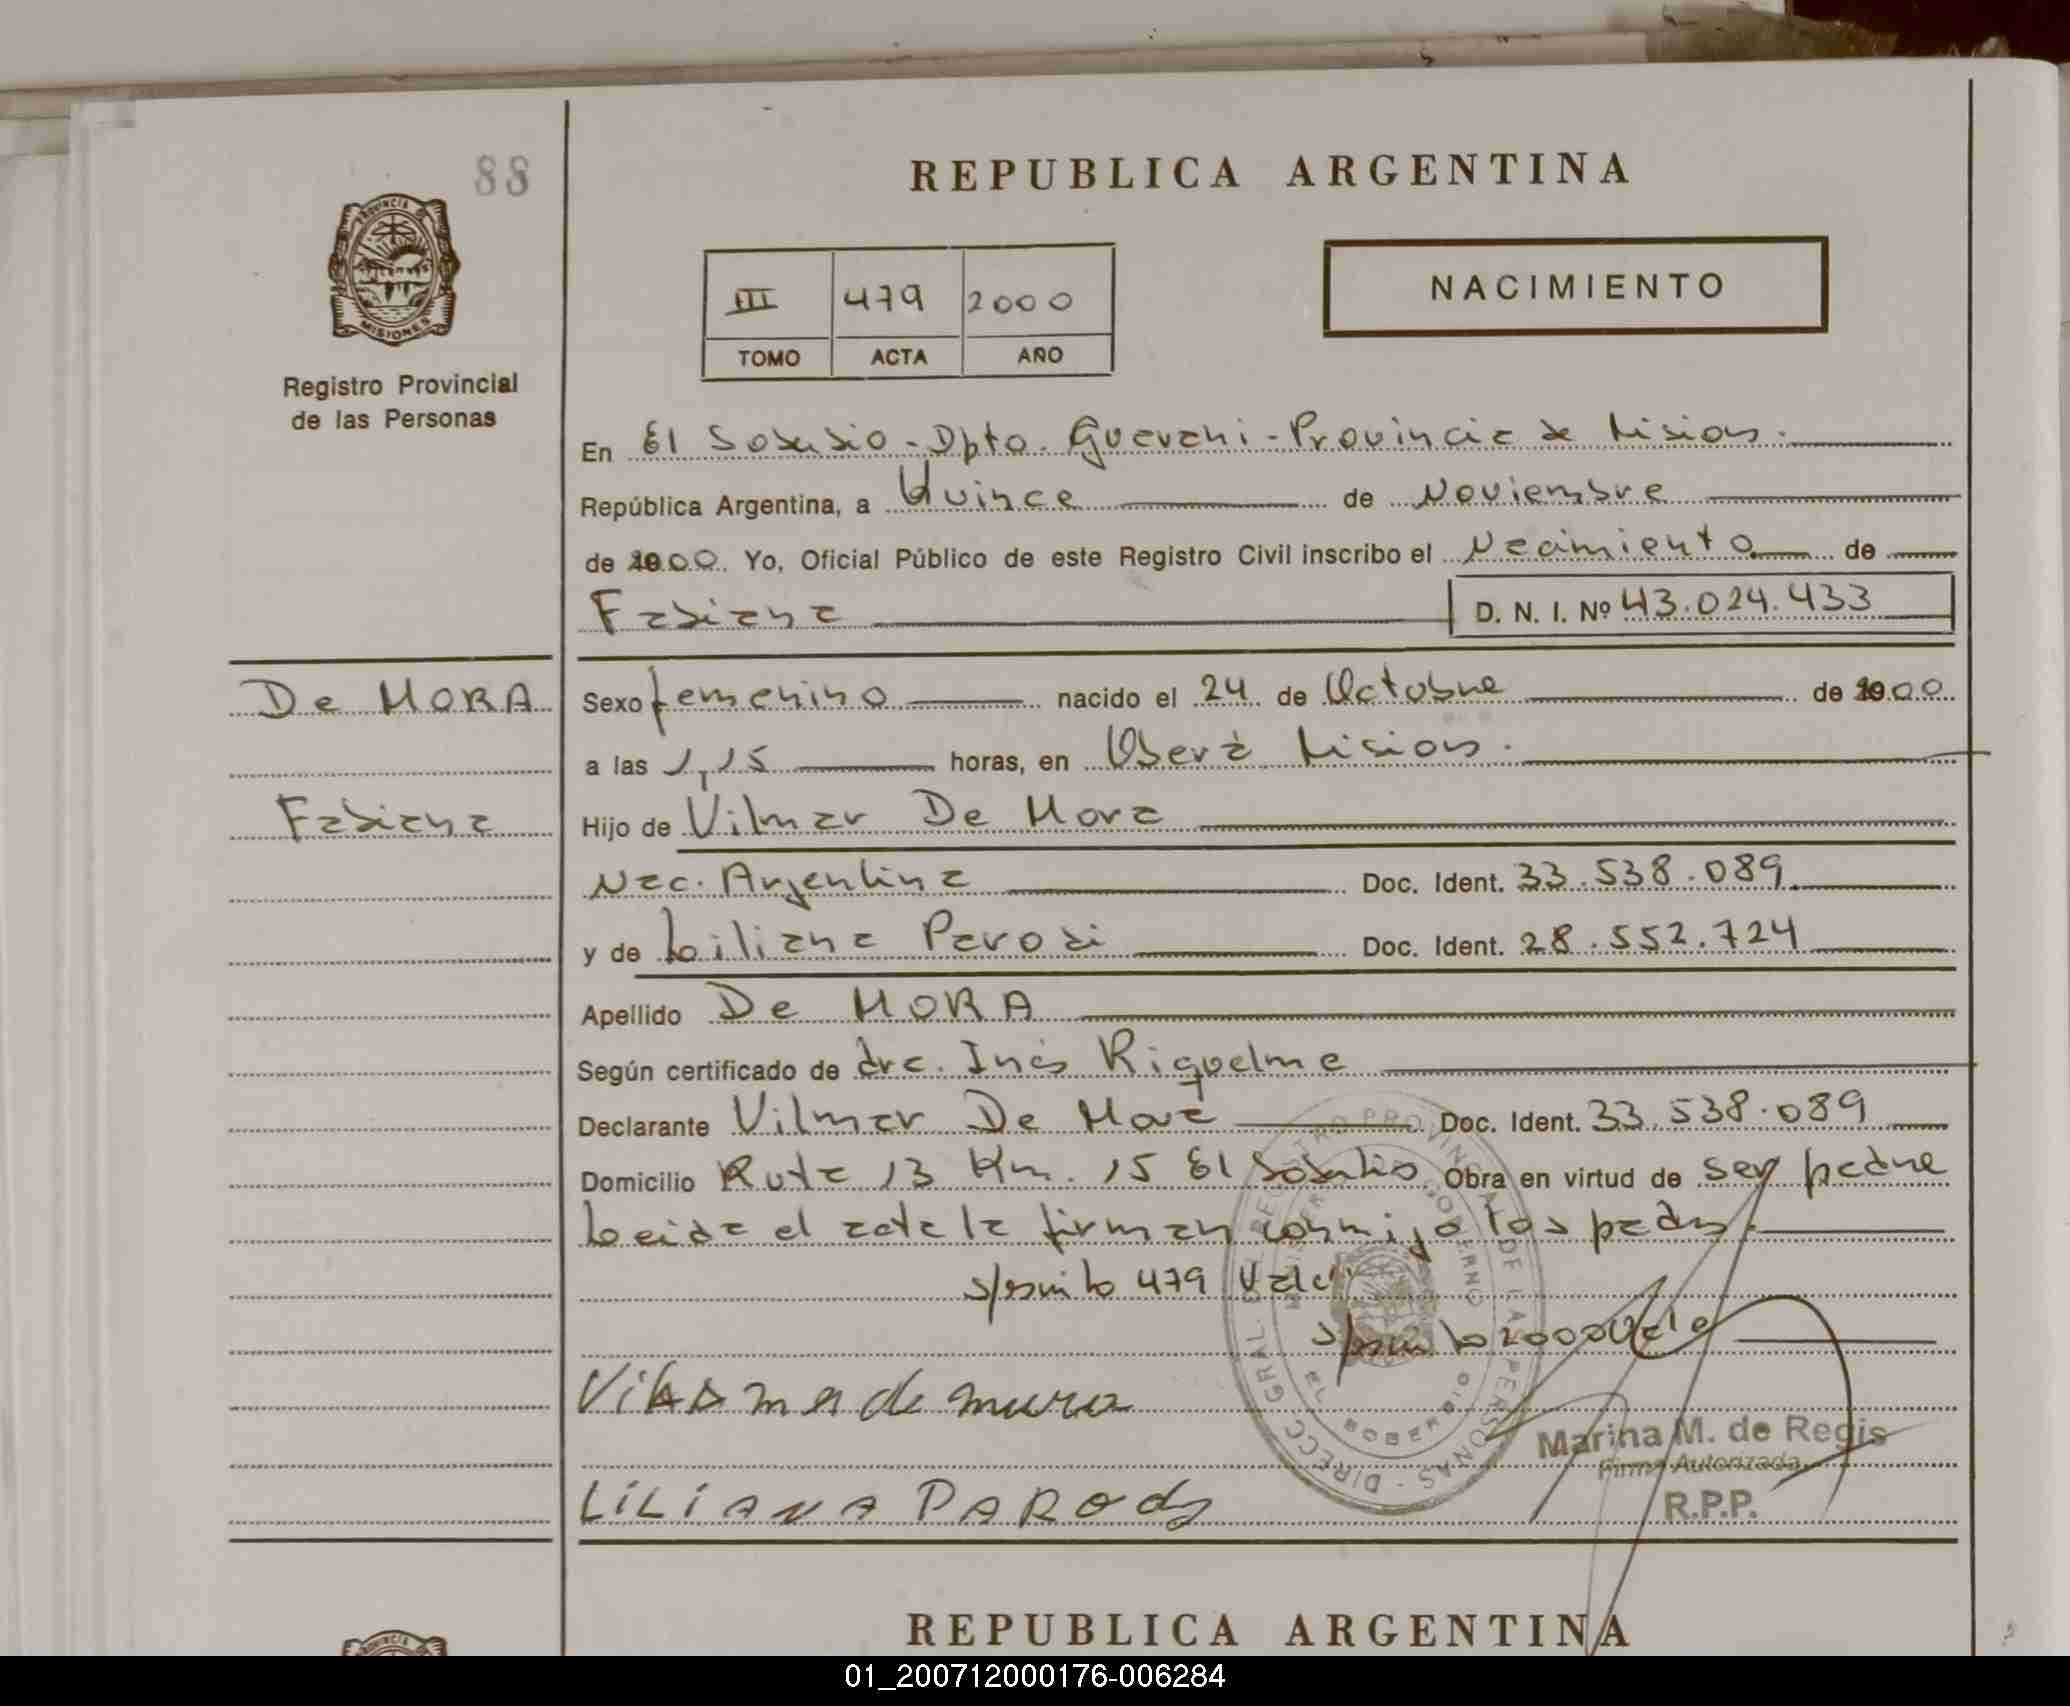 88
REPUBLICA ARGENTINA
PROVINCIA DE
MISIONES
NACIMIENTO
III 479 2000
TOMO ACTA AÑO
Registro Provincial
de las Personas
En El Soberbio - Dpto. Guarani - Provincia de Misiones.
República Argentina, a Quince de Noviembre
de 2000. Yo, Oficial Público de este Registro Civil inscribo el Nacimiento de
Fabiana D. N. I. Nº 43.024.433
De MORA
Sexo femenino nacido el 24 de Octubre de 2000
a las 1,15 horas, en Oberá Misiones.
Fabiana
Hijo de Vilmar De Mora
Nac. Argentina Doc. Ident. 33.538.089
y de Liliana Parodi Doc. Ident. 28.552.724
Apellido De MORA
Según certificado de dra. Inés Riquelme
Declarante Vilmar De Mora Doc. Ident. 33.538.089
Domicilio Ruta 13 Km. 15 El Soberbio Obra en virtud de ser padre
Leida el acta la firman conmigo los padres.
s/escrito 479 Vale
s/escrito 2000 Vale
de mura
LiLiANA PARODy
DIRECC. GRAL. DEL REGISTRO PROVINCIAL DE LAS PERSONAS
MINISTERIO GOBIERNO
EL SOBERBIO
Marina M. de Regis
Firma Autorizada
R.P.P.
REPUBLICA ARGENTINA
PROVINCIA
01_200712000176-006284